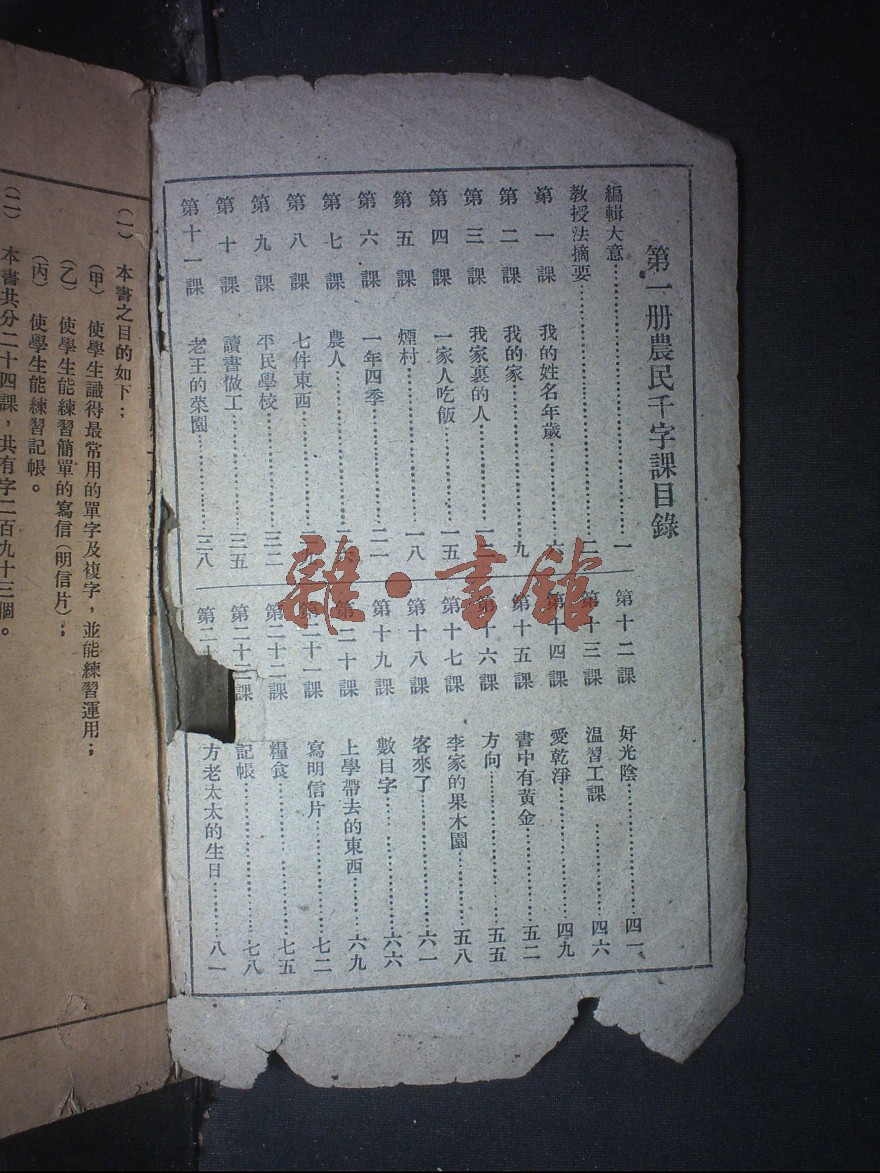 第一册農民千字課目錄
編輯大意 一
教授法摘要 二
第一課 我的姓名年歲 六
第二課 我的家 九
第三課 我家裏的人
第四課 一家人吃飯 一五
第五課 煙村 一八
第六課 一年四季 二一
第七課 農人
第八課 七件東西
第九課 平民學校 三二
第十課 讀書做工 三五
第十一課 老王的菜園 三八
第十二課 好光陰 四一
第十三課 温習工課 四六
第十四課 愛乾淨 四九
第十五課 書中有黃金 五二
第十六課 方向 五五
第十七課 李家的果木園 五八
第十八課 客來了 六一
第十九課 數目字 六六
第二十課 上學帶去的東西 六九
第二十一課 寫明信片 七二
第二十二課 糧食 七五
第二十三課 記帳 七八
第二十 方老太太的生日 八一
(一) 本書之目的如下；
(甲) 使學生識得最常用的單字及複字，並能練習運用；
(乙) 使學生能練習簡單的寫信（明信片）；
(丙) 使學生能練習記帳。
(二) 本書共分二十四課，共有字二百九十三個。
雜·書館